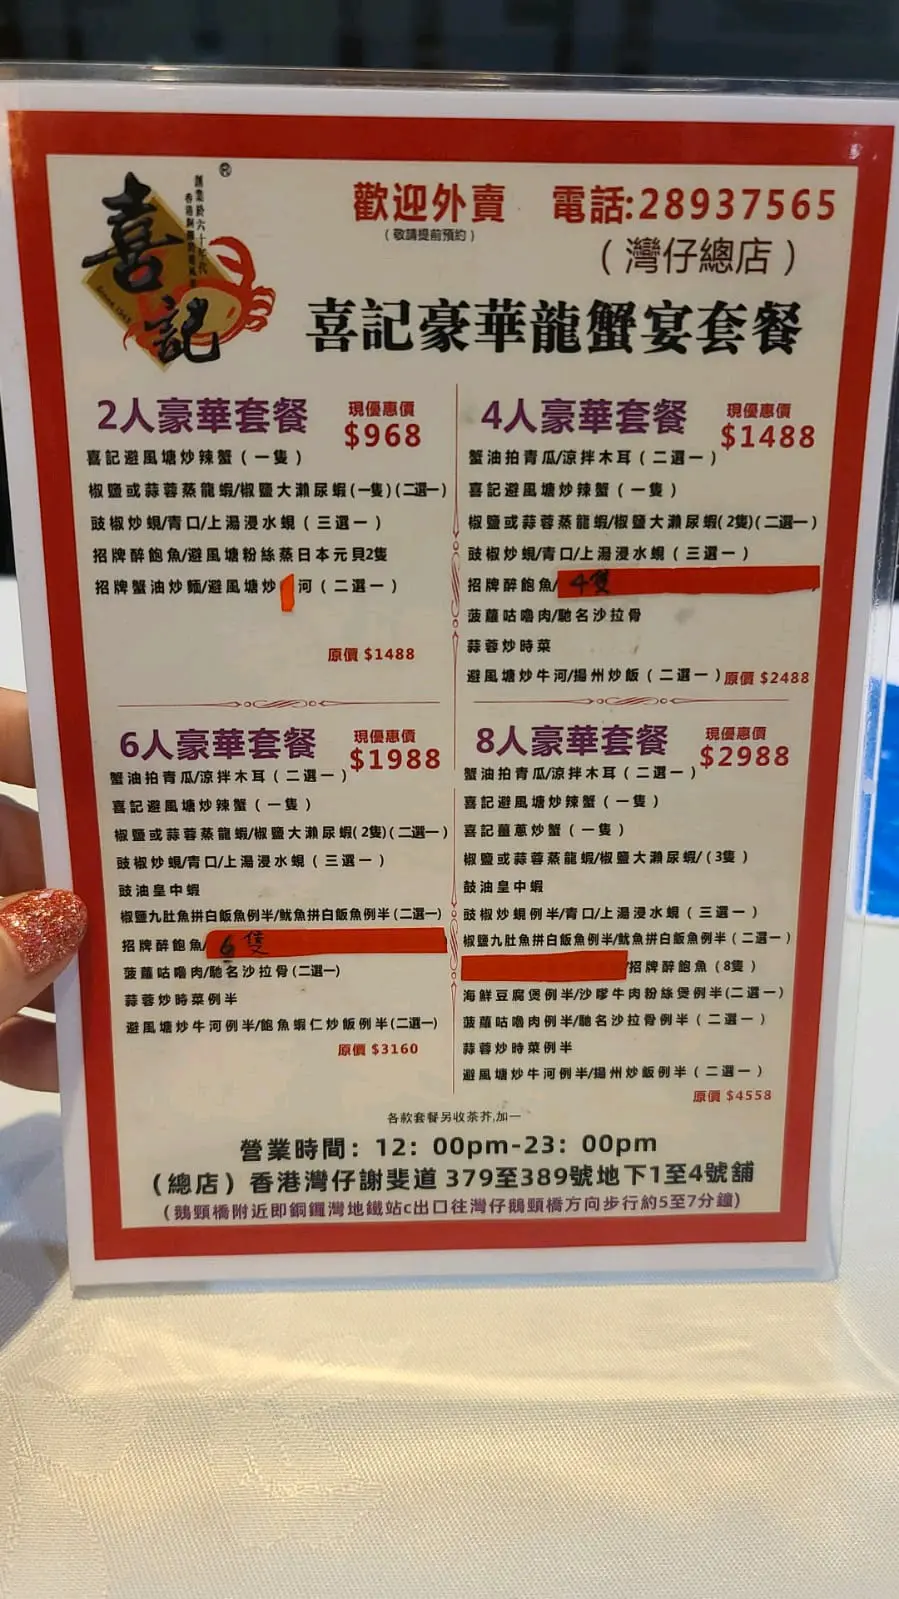 喜記
®
歡迎外賣 電話:28937565
(敬請提前預約)
(灣仔總店)
喜記豪華龍蟹宴套餐
2人豪華套餐 現優惠價 $968
喜記避風塘炒辣蟹(一隻)
椒鹽或蒜蓉蒸龍蝦/椒鹽大瀨尿蝦(一隻)(二選一)
豉椒炒蜆/青口/上湯浸水蜆(三選一)
招牌醉鮑魚/避風塘粉絲蒸日本元貝2隻
招牌蟹油炒麵/避風塘炒 河(二選一)
原價 $1488
4人豪華套餐 現優惠價 $1488
蟹油拍青瓜/涼拌木耳(二選一)
喜記避風塘炒辣蟹(一隻)
椒鹽或蒜蓉蒸龍蝦/椒鹽大瀨尿蝦(2隻)(二選一)
豉椒炒蜆/青口/上湯浸水蜆(三選一)
招牌醉鮑魚/ 4隻
菠蘿咕嚕肉/馳名沙拉骨
蒜蓉炒時菜
避風塘炒牛河/揚州炒飯(二選一)原價 $2488
6人豪華套餐 現優惠價 $1988
蟹油拍青瓜/涼拌木耳(二選一)
喜記避風塘炒辣蟹(一隻)
椒鹽或蒜蓉蒸龍蝦/椒鹽大瀨尿蝦(2隻)(二選一)
豉椒炒蜆/青口/上湯浸水蜆(三選一)
豉油皇中蝦
椒鹽九肚魚拼白飯魚例半/魷魚拼白飯魚例半(二選一)
招牌醉鮑魚/ 6隻
菠蘿咕嚕肉/馳名沙拉骨(二選一)
蒜蓉炒時菜例半
避風塘炒牛河例半/鮑魚蝦仁炒飯例半(二選一)
原價 $3160
8人豪華套餐 現優惠價 $2988
蟹油拍青瓜/涼拌木耳(二選一)
喜記避風塘炒辣蟹(一隻)
喜記薑蔥炒蟹(一隻)
椒鹽或蒜蓉蒸龍蝦/椒鹽大瀨尿蝦/(3隻)
鼓油皇中蝦
豉椒炒蜆例半/青口/上湯浸水蜆(三選一)
椒鹽九肚魚拼白飯魚例半/魷魚拼白飯魚例半(二選一)
/招牌醉鮑魚(8隻)
海鮮豆腐煲例半/沙嗲牛肉粉絲煲例半(二選一)
菠蘿咕嚕肉例半/馳名沙拉骨例半(二選一)
蒜蓉炒時菜例半
避風塘炒牛河例半/揚州炒飯例半(二選一)
原價 $4558
各款套餐另收茶芥,加一
營業時間: 12: 00pm-23: 00pm
(總店)香港灣仔謝斐道 379至389號地下1至4號舖
(鵝頸橋附近即銅鑼灣地鐵站c出口往灣仔鵝頸橋方向步行約5至7分鐘)